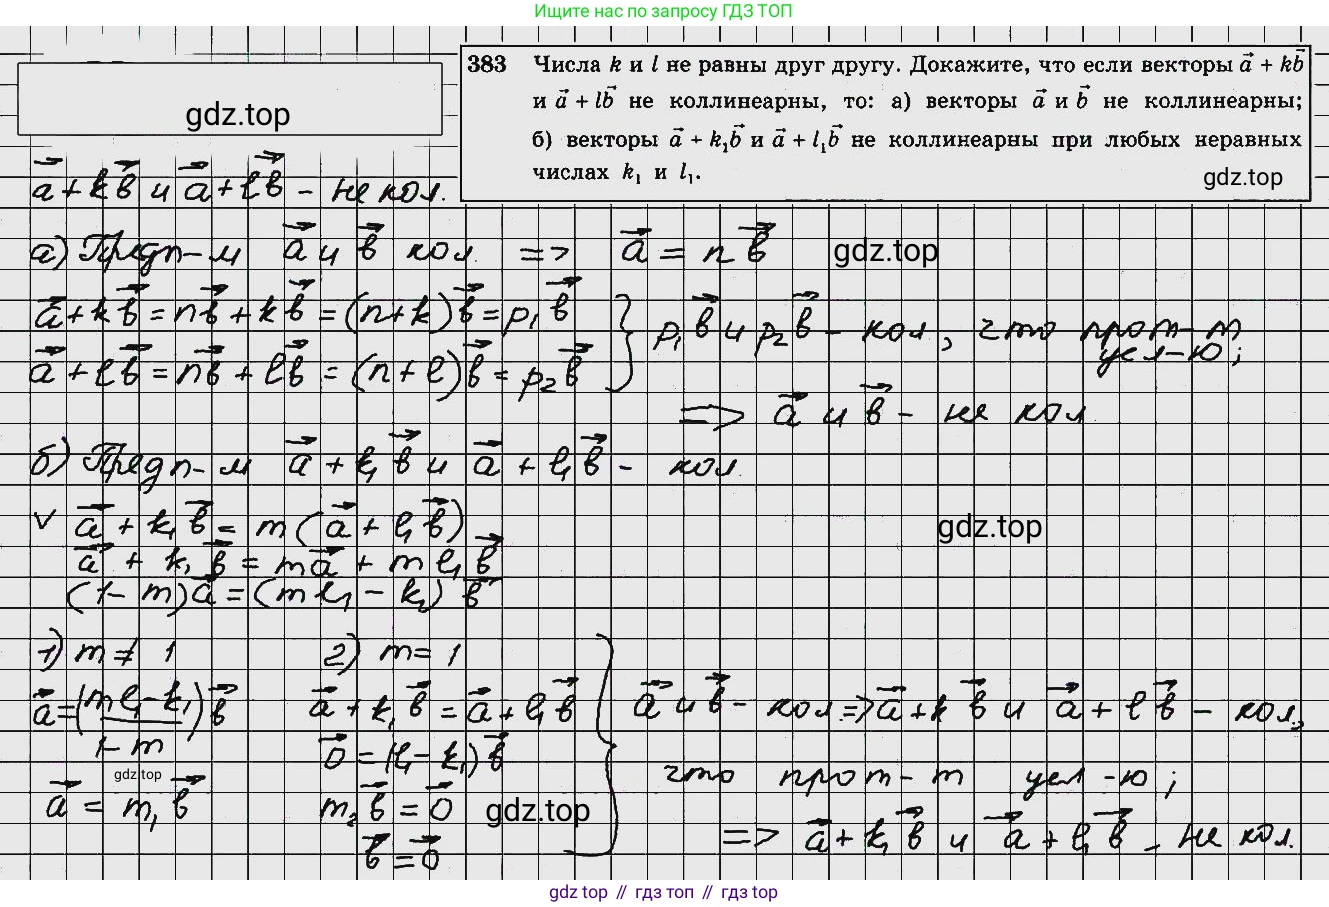 Ищите нас по запросу ГДЗ ТОП
gdz.top
383 Числа k и l не равны друг другу. Докажите, что если векторы a⃗ + kb⃗
и a⃗ + lb⃗ не коллинеарны, то: а) векторы a⃗ и b⃗ не коллинеарны;
б) векторы a⃗ + k₁b⃗ и a⃗ + l₁b⃗ не коллинеарны при любых неравных
числах k₁ и l₁.
gdz.top
a⃗ + kb⃗ и a⃗ + lb⃗ – не кол.
а) Предп-м a⃗ и b⃗ кол. => a⃗ = nb⃗
gdz.top
a⃗ + kb⃗ = nb⃗ + kb⃗ = (n+k)b⃗ = p₁b⃗
a⃗ + lb⃗ = nb⃗ + lb⃗ = (n+l)b⃗ = p₂b⃗
p₁b⃗ и p₂b⃗ – кол., что прот-т
усл-ю;
=> a⃗ и b⃗ – не кол
б) Предп-м a⃗ + k₁b⃗ и a⃗ + l₁b⃗ – кол.
∨ a⃗ + k₁b⃗ = m(a⃗ + l₁b⃗)
gdz.top
a⃗ + k₁b⃗ = ma⃗ + ml₁b⃗
(1–m)a⃗ = (ml₁ – k₁)b⃗
1) m ≠ 1
a⃗ = ((ml₁–k₁)/(1–m))b⃗
gdz.top
a⃗ = m₁b⃗
2) m = 1
a⃗ + k₁b⃗ = a⃗ + l₁b⃗
0⃗ = (l₁ – k₁)b⃗
m₂b⃗ = 0⃗
gdz.top
b⃗ = 0⃗
a⃗ и b⃗ – кол => a⃗ + kb⃗ и a⃗ + lb⃗ – кол.,
что прот-т усл-ю;
=> a⃗ + k₁b⃗ и a⃗ + l₁b⃗ – не кол.
gdz top // гдз топ // gdz top